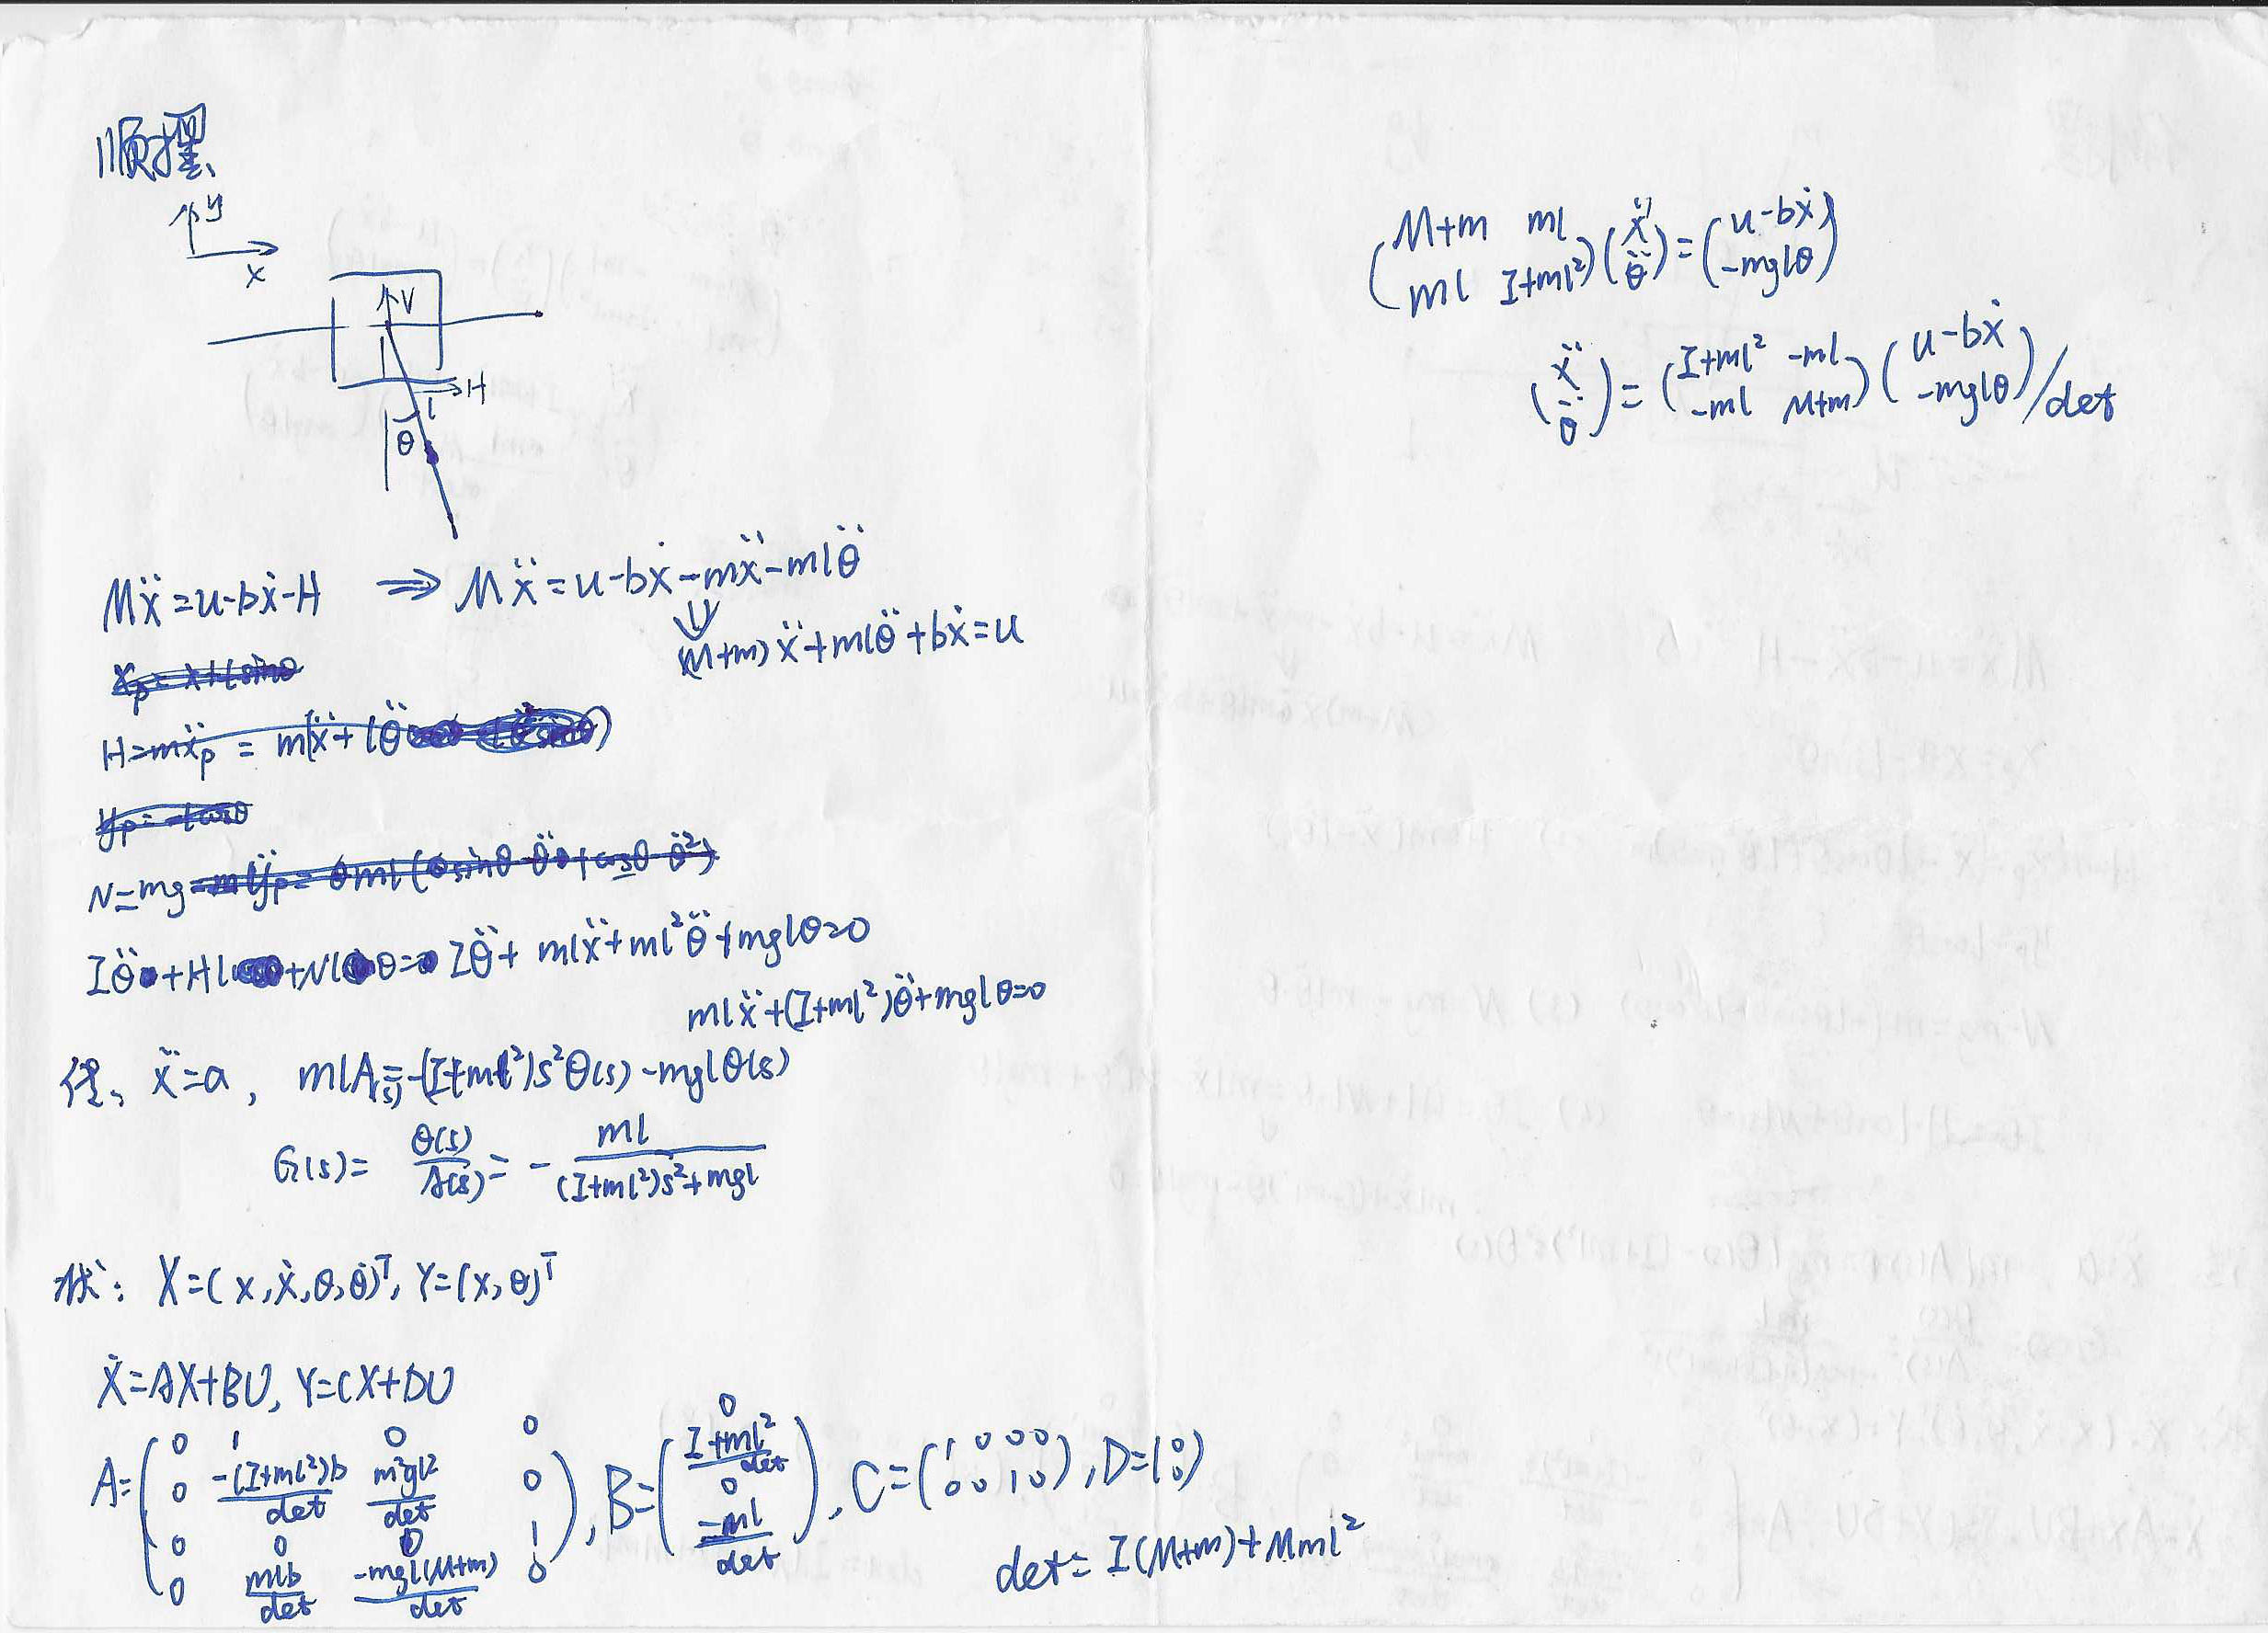 顺摆
y
x
V
H
l
θ
Mẍ=u-bẋ-H ⇒ Mẍ=u-bẋ-mẍ-mlθ̈
⇓
(M+m)ẍ+mlθ̈+bẋ=u
x_p=x+lsinθ
H=mẍ_p = m(ẍ+lθ̈)
y_p=-lcosθ
N=mg
Iθ̈+Hl+Nlθ= Iθ̈+mlẍ+ml²θ̈+mglθ=0
mlẍ+(I+ml²)θ̈+mglθ=0
传、ẍ=a, mlA(s)=-(I+ml²)s²θ(s)-mglθ(s)
G(s)= θ(s)/A(s) = - ml/((I+ml²)s²+mgl)
状: X=(x,ẋ,θ,θ̇)ᵀ, Y=(x,θ)ᵀ
Ẋ=AX+BU, Y=CX+DU
A=(0 1 0 0
0 -(I+ml²)b/det m²gl²/det 0
0 0 0 1
0 mlb/det -mgl(M+m)/det 0), B=(0
(I+ml²)/det
0
-ml/det), C=(1 0 0 0
0 0 1 0), D=(0
0)
det= I(M+m)+Mml²
(M+m ml
ml I+ml²)(ẍ
θ̈)=(u-bẋ
-mglθ)
(ẍ
θ̈)=(I+ml² -ml
-ml M+m)(u-bẋ
-mglθ)/det